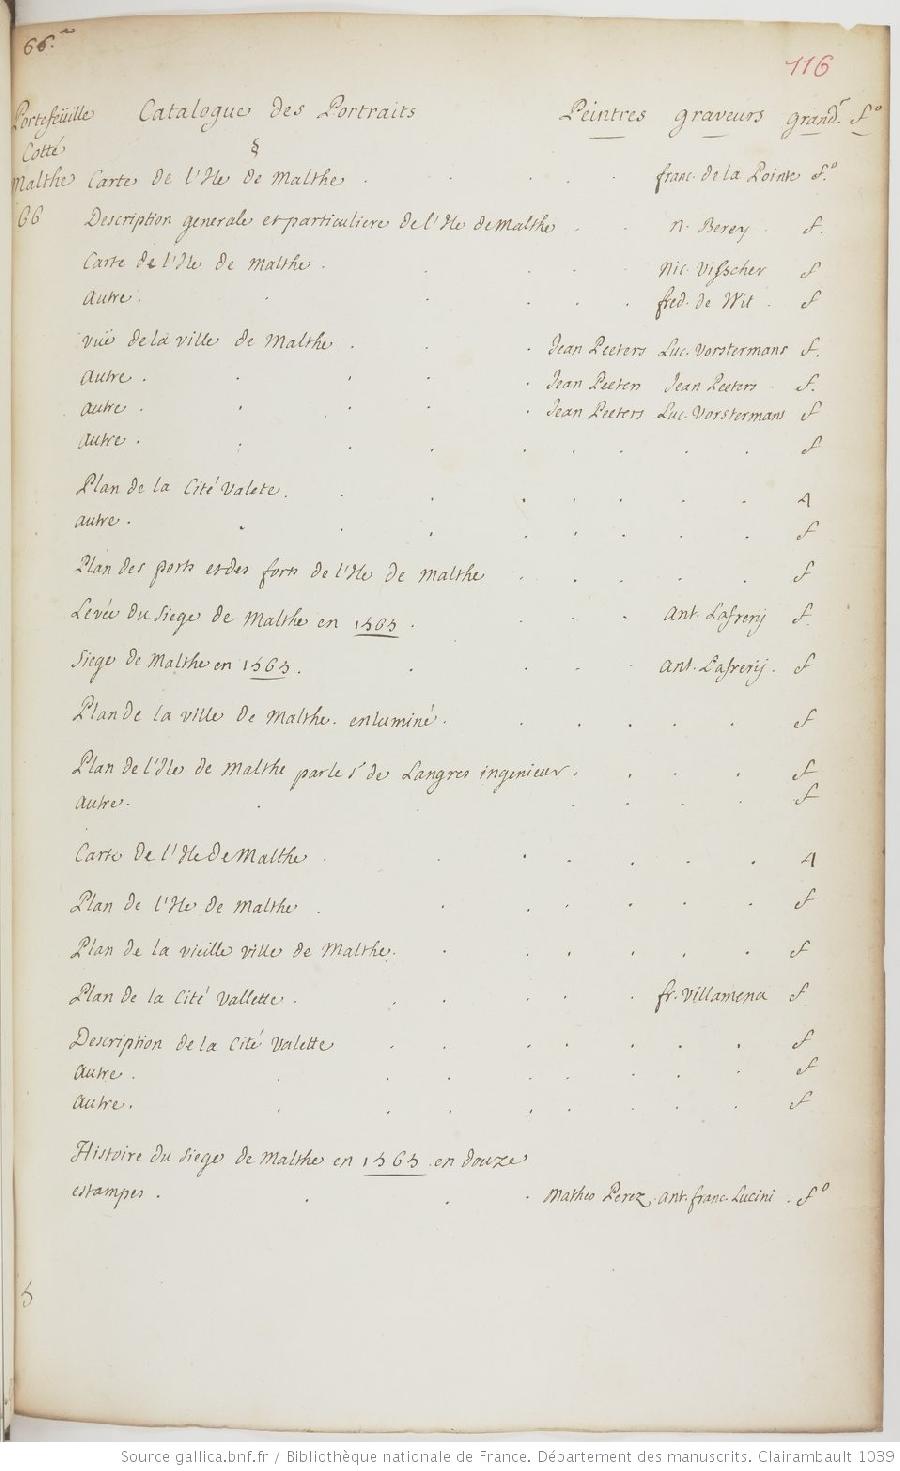 66.e
116
Portefeüille Catalogue des Portraits Peintres graveurs grandr. fo
Cotté §
Malthe Carte de l'Ile de Malthe . . . . franc. de la Pointe fo
66 Description generale et particuliere de l'Ile de Malthe . . N. Berey . f.
Carte de l'Ile de Malthe . . . . . Nic. Visscher f
autre . . . . . . fred. de Wit . f
vuë de la ville de Malthe . . . Jean Peeters Luc. Vorstermans f.
autre . . . . . Jean Peeters Jean Peeters . f.
autre . . . . . Jean Peeters Luc. Vorstermans f
autre . . . . . . . . . f
Plan de la Cité Valete . . . . . . . . 4
autre . . . . . . . . . f
Plan des ports et des forts de l'Ile de Malthe . . . . . f
Levée du Siege de Malthe en 1565 . . . . Ant. Lafrerij f.
Siege de Malthe en 1565 . . . . . ant. Lafrerij . f
Plan de la ville de Malthe . enluminé . . . . . . f
Plan de l'Ile de Malthe par le Sr de Langres ingenieur . . . . f
autre . . . . . f
Carte de l'Ile de Malthe . . . . . . . 4
Plan de l'Ile de Malthe . . . . . . . f
Plan de la vieille ville de Malthe . . . . . . . f
Plan de la Cité Vallette . . . . . . fr. Villamena f
Description de la Cité Valette . . . . . . . f
autre . . . . . . . . f
autre . . . . . . . . f
Histoire du Siege de Malthe en 1565 en douze
estampes . . . . Matheo Perez . ant. franc. Lucini . fo
5
Source gallica.bnf.fr / Bibliothèque nationale de France. Département des manuscrits. Clairambault 1039